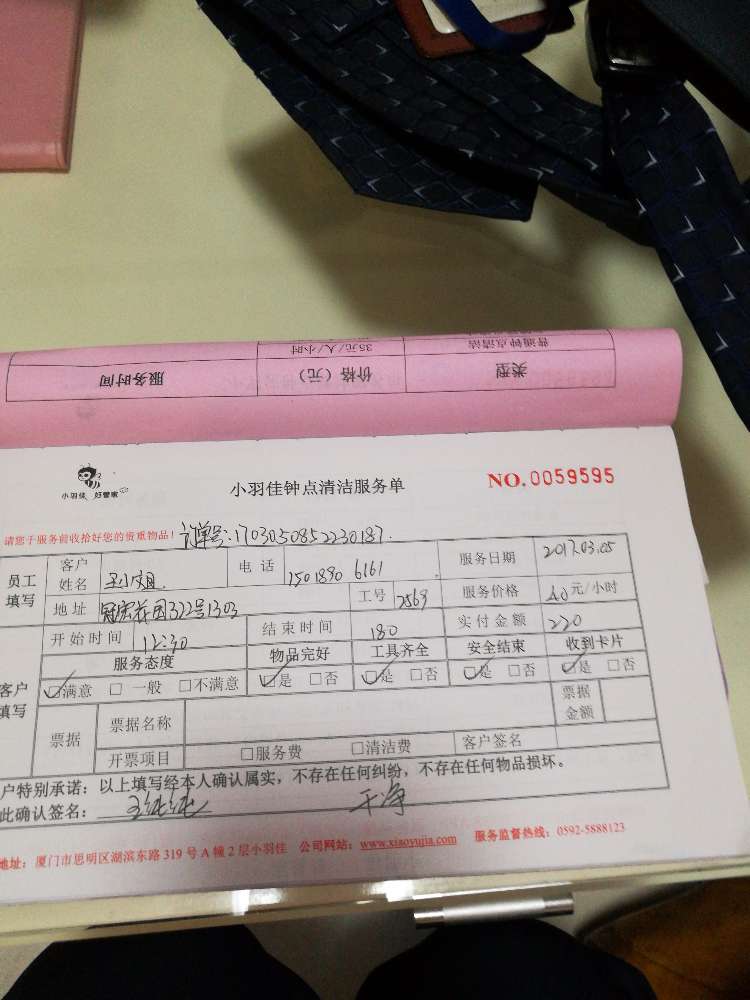 类型 价格（元） 服务时间
普通钟点清洁 35元/人/小时
小羽佳 好管家
小羽佳钟点清洁服务单
NO.0059595
请您于服务前收拾好您的贵重物品！ 订单号:1703050852230187.
员工填写 客户姓名 王小姐 电话 1501890 6161 服务日期 2017.03.05
地址 冠宏花园322号1303 工号 2569 服务价格 40元/小时
开始时间 12:30 结束时间 180 实付金额 220
客户填写 服务态度 物品完好 工具齐全 安全结束 收到卡片
☑满意 □一般 □不满意 ☑是 □否 ☑是 □否 ☑是 □否 ☑是 □否
票据 票据名称 票据金额
开票项目 □服务费 □清洁费 客户签名
户特别承诺：以上填写经本人确认属实，不存在任何纠纷，不存在任何物品损坏。
此确认签名： 王纯纯 干净
地址：厦门市思明区湖滨东路319号A幢2层小羽佳 公司网站：www.xiaoyujia.com 服务监督热线：0592-5888123